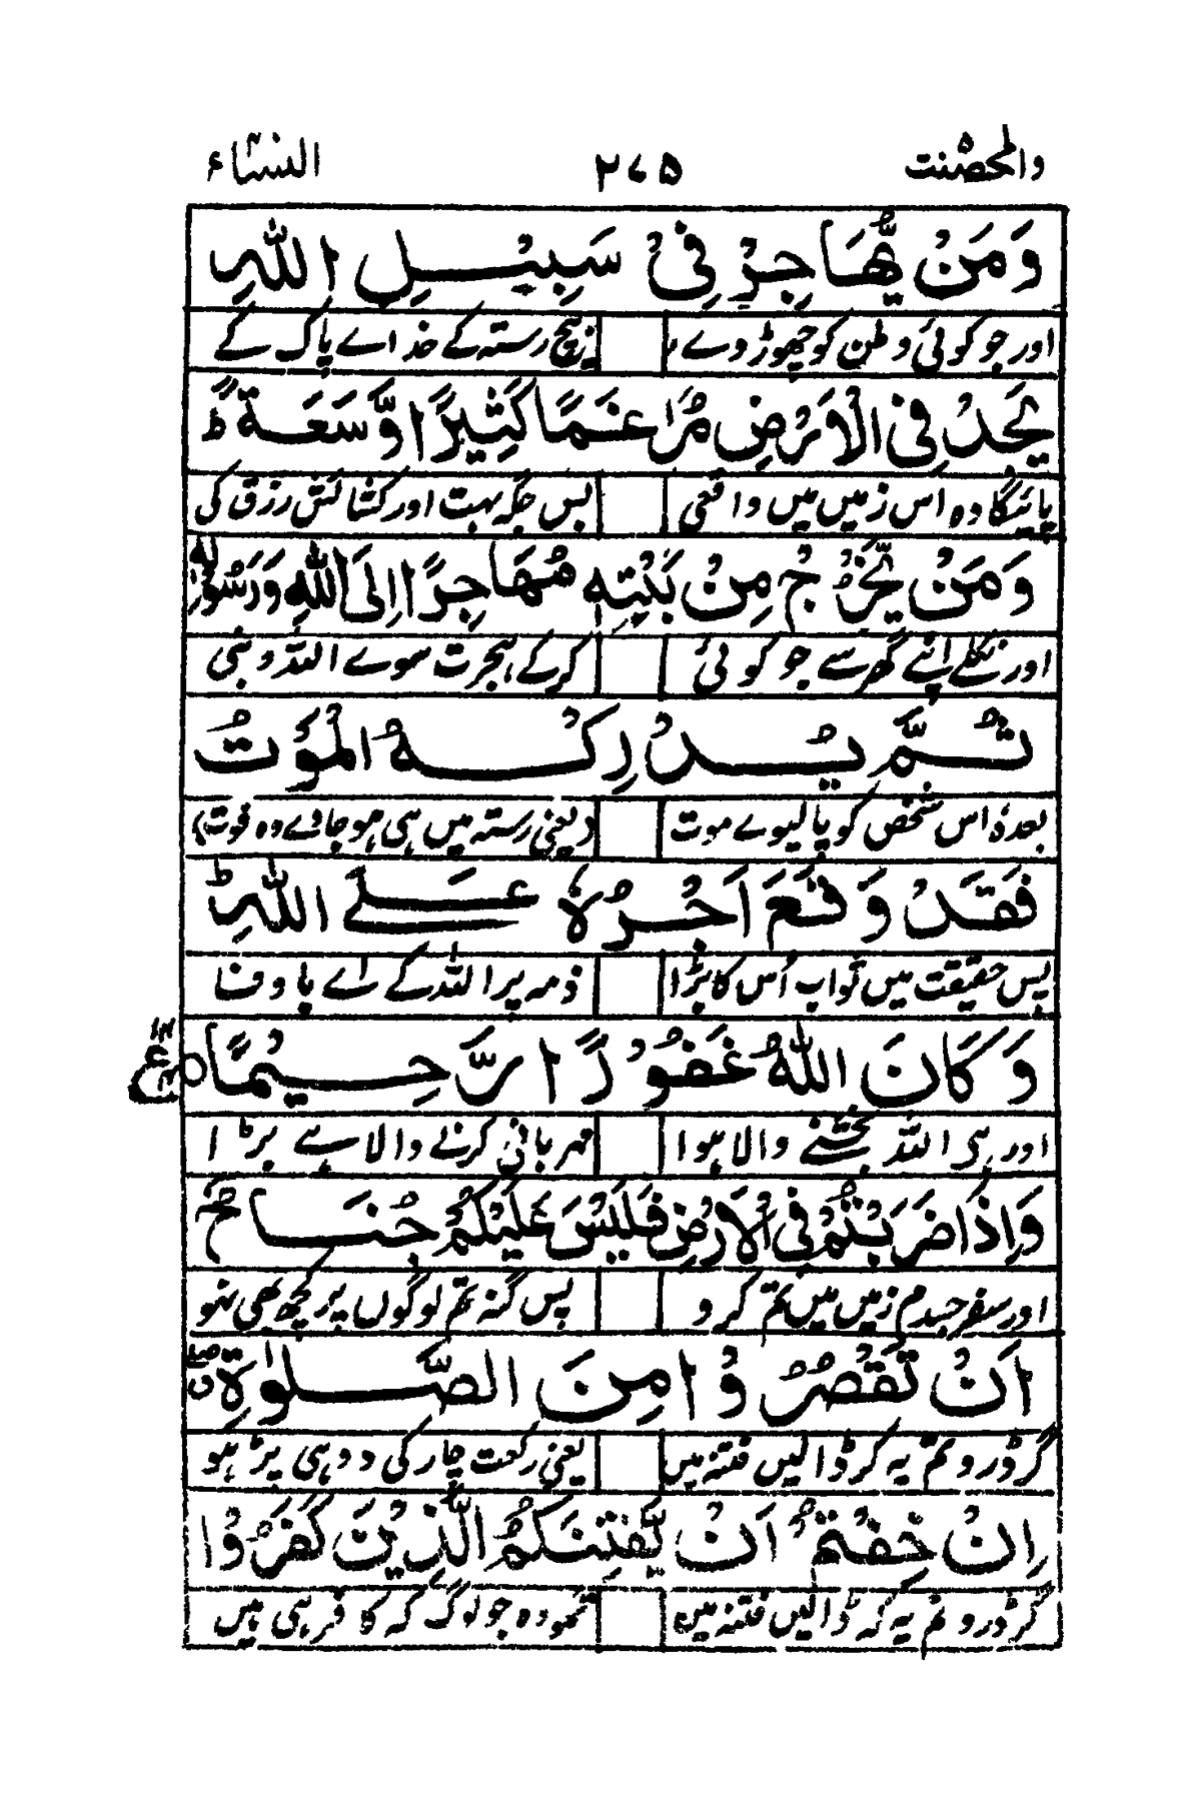 والمحصنت ۲۷۵ النساء
وَمَنْ يُّهَاجِرْ فِىْ سَبِيْلِ اللّٰهِ
اور جو کوئی وطن کو چھوڑ دے بیچ رستہ کے خداے پاک کے
يَجِدْ فِى الْاَرْضِ مُرَاغَمًا كَثِيْرًا وَّسَعَةً ؕ
پائیگا وہ اس زمیں میں واقعی بس جگہ بہت اور کشائش رزق کی
وَمَنْ يَّخْرُجْ مِنْ بَيْتِهٖ مُهَاجِرًا اِلَى اللّٰهِ وَرَسُوْلِهٖ
اور نکلے اپنے گھر سے جو کوئی کرکے ہجرت سوے اللہ و نبی
ثُمَّ يُدْرِكْهُ الْمَوْتُ
بعدہٗ اس شخص کو پا لیوے موت (یعنی رستہ میں ہی ہو جاوے وہ فوت)
فَقَدْ وَقَعَ اَجْرُهٗ عَلَى اللّٰهِ ؕ
پس حقیقت میں ثواب اُس کا بڑا ذمہ پر اللہ کے اے با وفا
وَكَانَ اللّٰهُ غَفُوْرًا رَّحِيْمًا ۝ ع
اور ہی اللہ بخشنے والا ہوا مہربانی کرنے والا ہے بڑا
وَاِذَا ضَرَبْتُمْ فِى الْاَرْضِ فَلَيْسَ عَلَيْكُمْ جُنَاحٌ
اور سفر جسدم زمیں میں تم کرو پس گنہ تم لوگوں پر کچھ بھی نہو
اَنْ تَقْصُرُوْا مِنَ الصَّلٰوةِ ۖ
گر ڈرو تم یہ کہ ڈالیں فتنہ میں یعنی رکعت چار کی دو ہی پڑہو
اِنْ خِفْتُمْ اَنْ يَّفْتِنَكُمُ الَّذِيْنَ كَفَرُوْا
گر ڈرو تم یہ کہ ڈالیں فتنہ میں تمکو وہ جو لوگ کہ کافر ہی ہیں